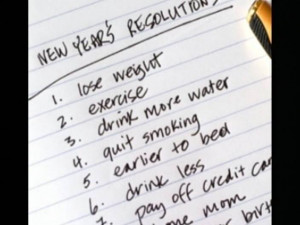 NEW YEAR'S RESOLUTIONS
1. lose weight
2. exercise
3. drink more water
4. quit smoking
5. earlier to bed
6. drink less
7. pay off credit
mom